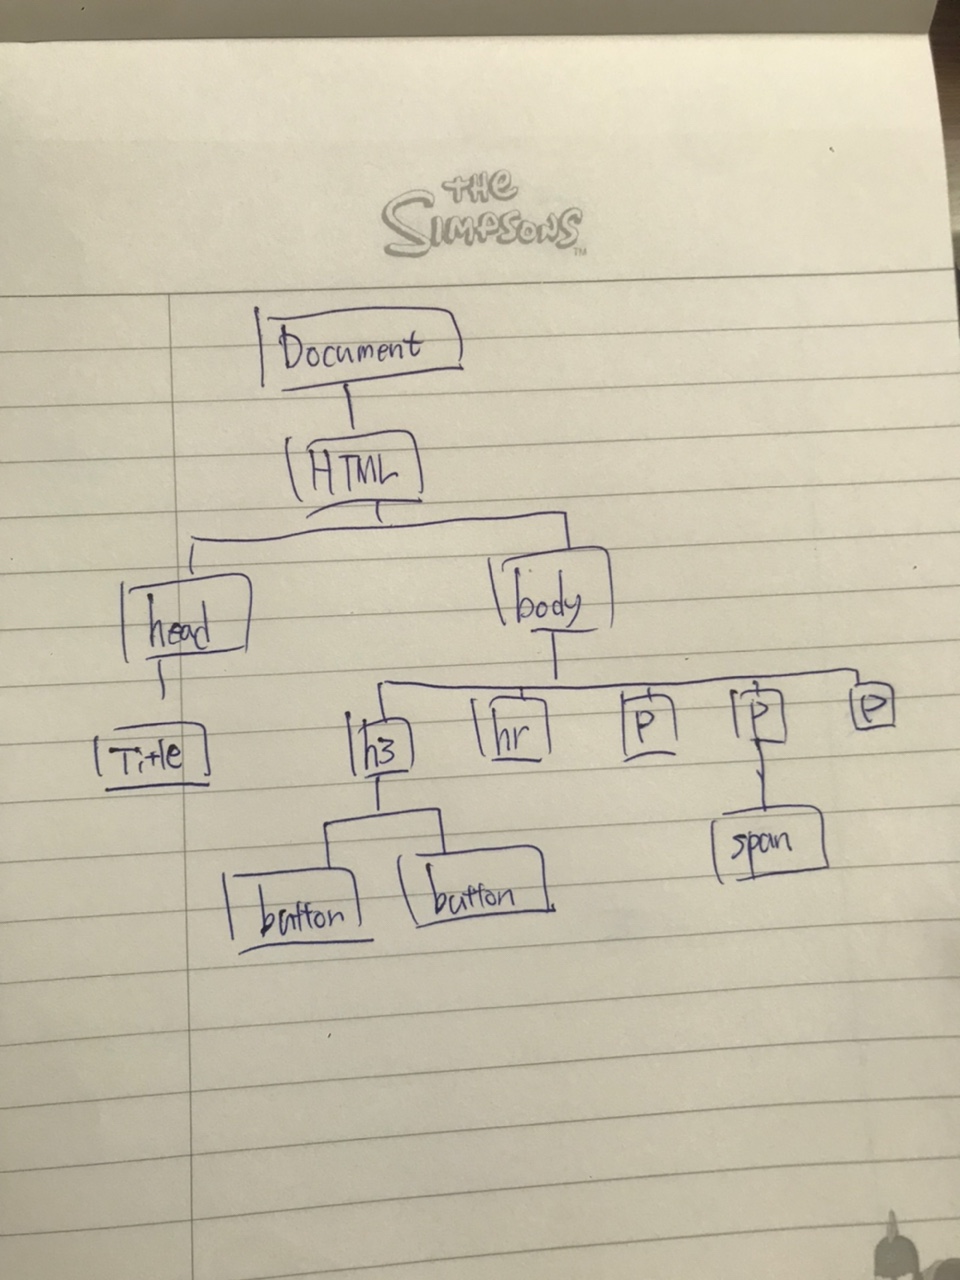 THE
SIMPSONS™
Document
HTML
head
body
Title
h3
hr
P
P
P
span
button
button